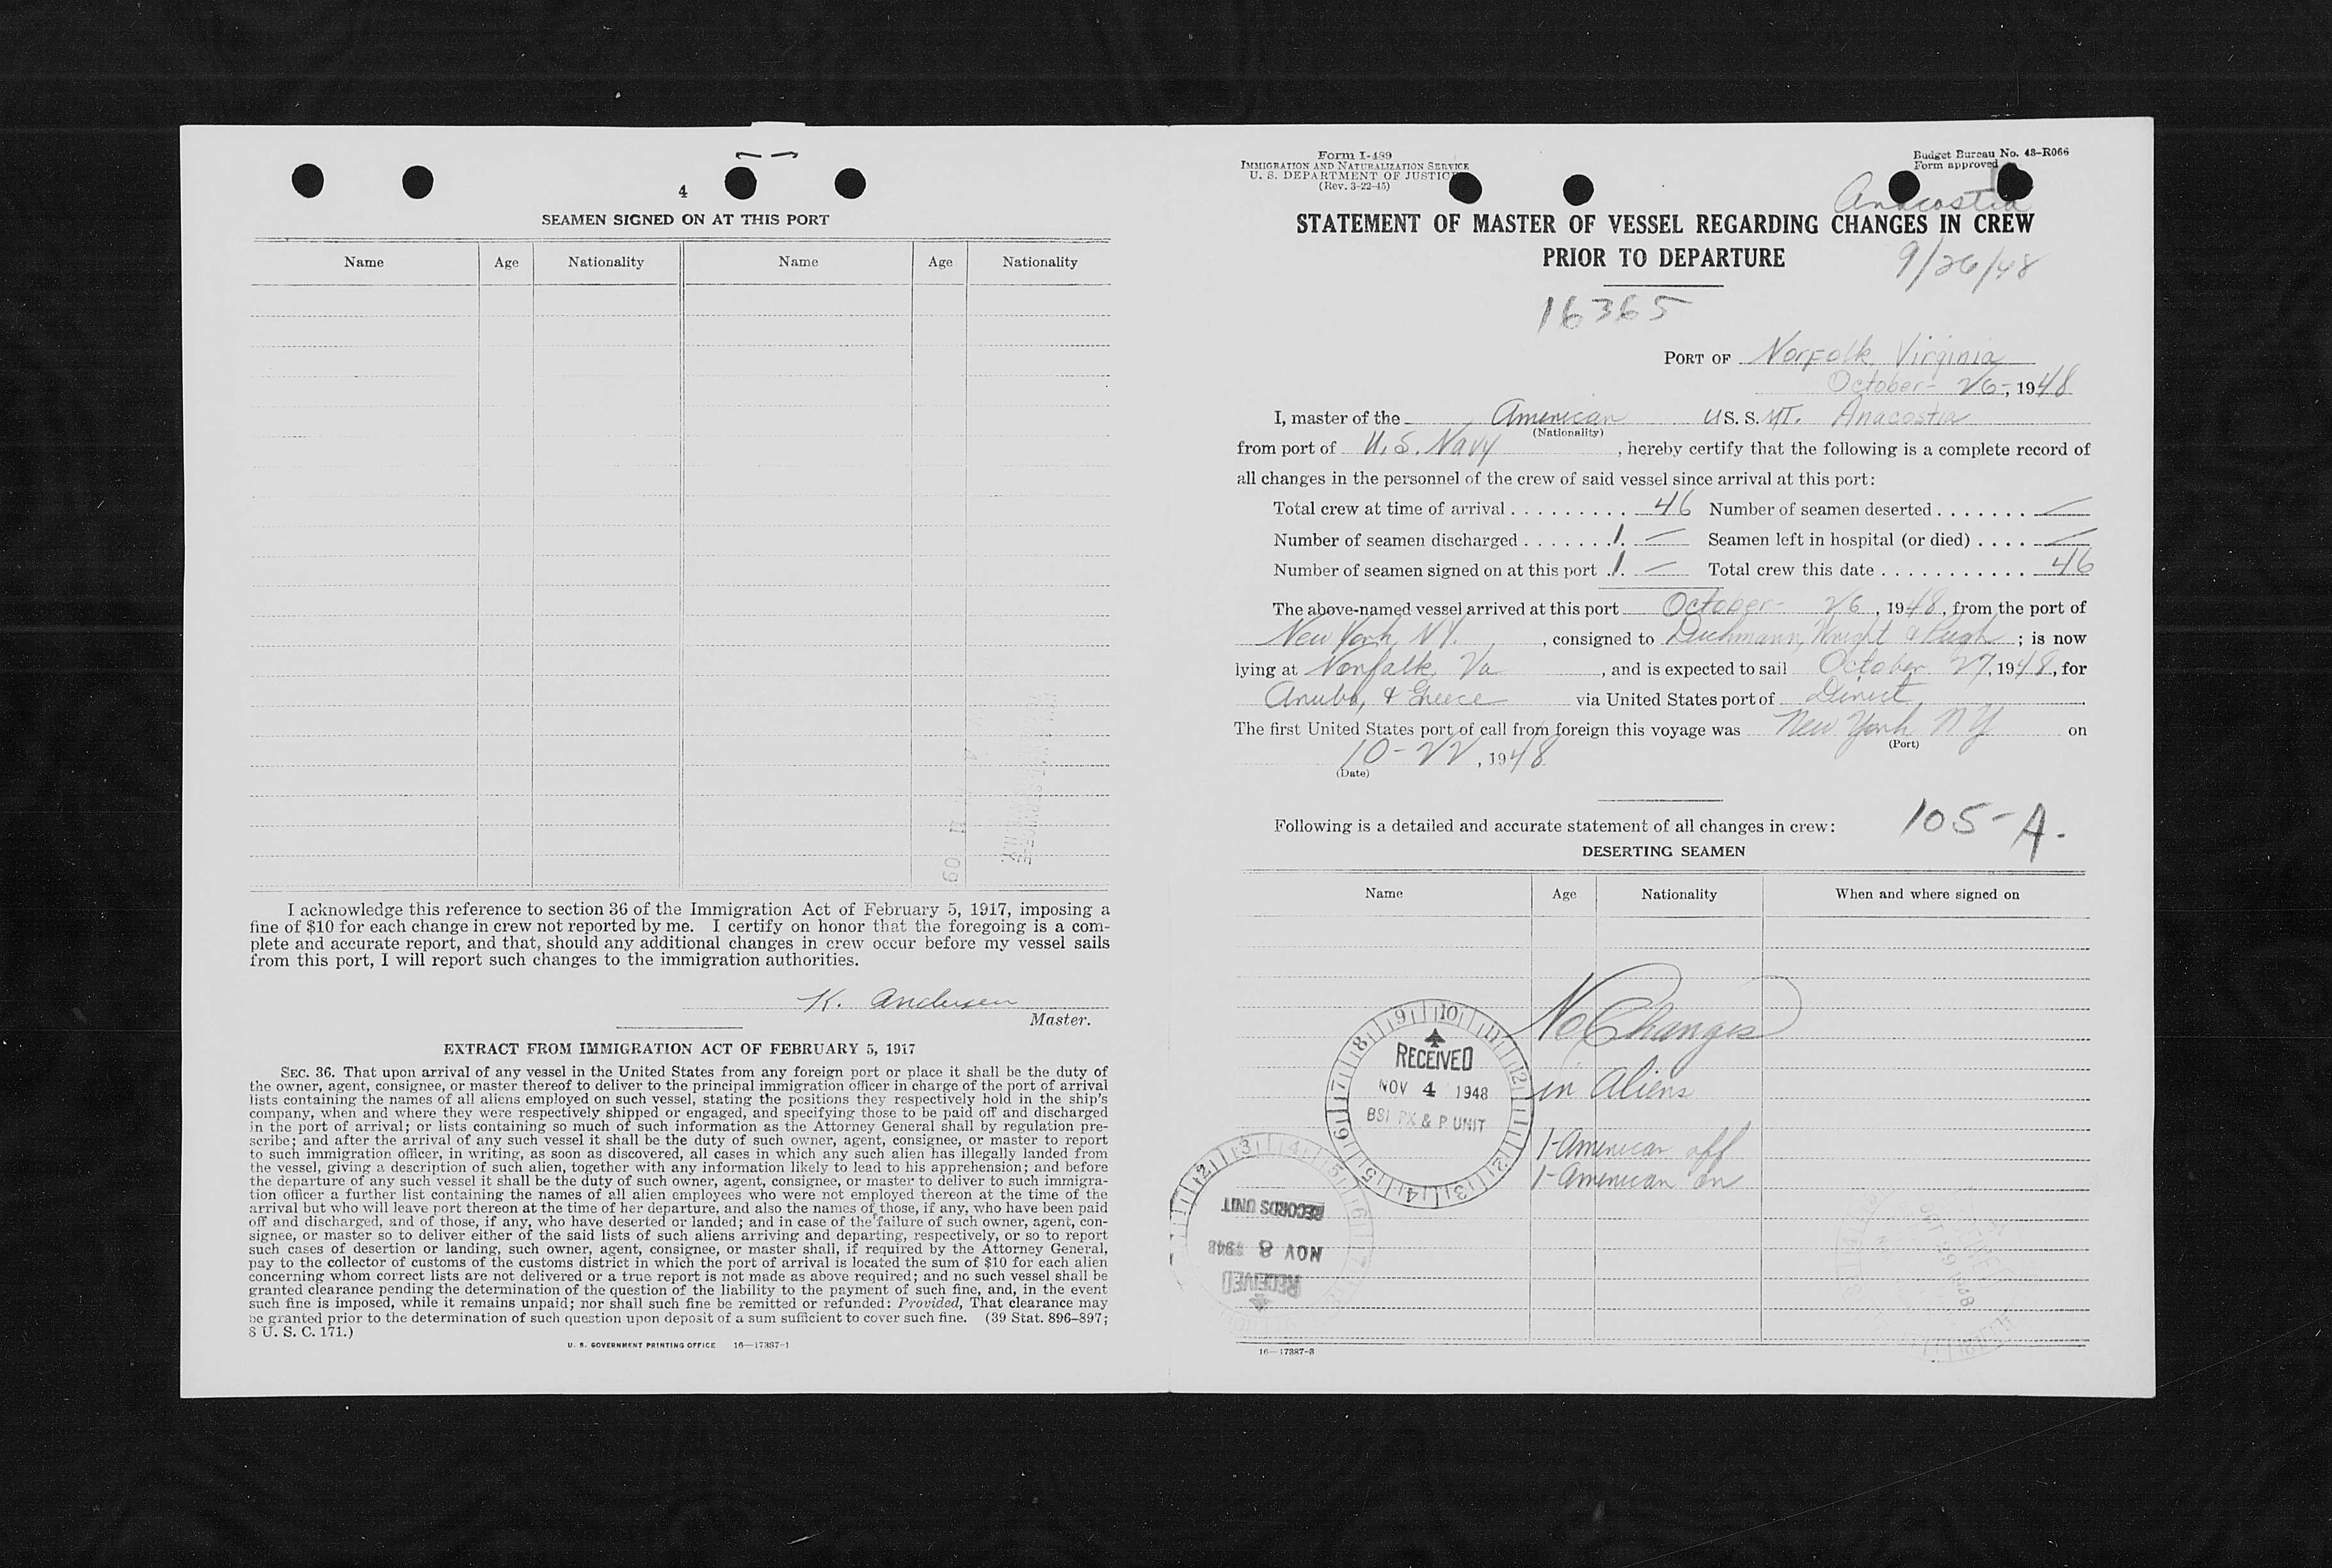 4
SEAMEN SIGNED ON AT THIS PORT
Name Age Nationality Name Age Nationality
I acknowledge this reference to section 36 of the Immigration Act of February 5, 1917, imposing a
fine of $10 for each change in crew not reported by me. I certify on honor that the foregoing is a com-
plete and accurate report, and that, should any additional changes in crew occur before my vessel sails
from this port, I will report such changes to the immigration authorities.
K. Andersen
Master.
EXTRACT FROM IMMIGRATION ACT OF FEBRUARY 5, 1917
SEC. 36. That upon arrival of any vessel in the United States from any foreign port or place it shall be the duty of
the owner, agent, consignee, or master thereof to deliver to the principal immigration officer in charge of the port of arrival
lists containing the names of all aliens employed on such vessel, stating the positions they respectively hold in the ship's
company, when and where they were respectively shipped or engaged, and specifying those to be paid off and discharged
in the port of arrival; or lists containing so much of such information as the Attorney General shall by regulation pre-
scribe; and after the arrival of any such vessel it shall be the duty of such owner, agent, consignee, or master to report
to such immigration officer, in writing, as soon as discovered, all cases in which any such alien has illegally landed from
the vessel, giving a description of such alien, together with any information likely to lead to his apprehension; and before
the departure of any such vessel it shall be the duty of such owner, agent, consignee, or master to deliver to such immigra-
tion officer a further list containing the names of all alien employees who were not employed thereon at the time of the
arrival but who will leave port thereon at the time of her departure, and also the names of those, if any, who have been paid
off and discharged, and of those, if any, who have deserted or landed; and in case of the failure of such owner, agent, con-
signee, or master so to deliver either of the said lists of such aliens arriving and departing, respectively, or so to report
such cases of desertion or landing, such owner, agent, consignee, or master shall, if required by the Attorney General,
pay to the collector of customs of the customs district in which the port of arrival is located the sum of $10 for each alien
concerning whom correct lists are not delivered or a true report is not made as above required; and no such vessel shall be
granted clearance pending the determination of the question of the liability to the payment of such fine, and, in the event
such fine is imposed, while it remains unpaid; nor shall such fine be remitted or refunded: Provided, That clearance may
be granted prior to the determination of such question upon deposit of a sum sufficient to cover such fine. (39 Stat. 896-897;
8 U. S. C. 171.)
U. S. GOVERNMENT PRINTING OFFICE 16—17387-1
Form I-489
IMMIGRATION AND NATURALIZATION SERVICE
U. S. DEPARTMENT OF JUSTICE
(Rev. 3-22-45)
Budget Bureau No. 43-R066
Form approved
Anacostia
STATEMENT OF MASTER OF VESSEL REGARDING CHANGES IN CREW
PRIOR TO DEPARTURE
9/26/48
16365
PORT OF Norfolk, Virginia
October- 26-, 1948
I, master of the American U S. S. MT. Anacostia
(Nationality)
from port of U.S. Navy , hereby certify that the following is a complete record of
all changes in the personnel of the crew of said vessel since arrival at this port:
Total crew at time of arrival . . . . . . . . . 46 Number of seamen deserted . . . . . . . —
Number of seamen discharged . . . . . . . 1. — Seamen left in hospital (or died) . . . . —
Number of seamen signed on at this port . 1. — Total crew this date . . . . . . . . . . . 46
The above-named vessel arrived at this port October- 26, 1948, from the port of
New York, N.Y. , consigned to Dichmann, Wright & Pugh ; is now
lying at Norfolk, Va , and is expected to sail October 27, 1948, for
Aruba, & Greece via United States port of Direct
The first United States port of call from foreign this voyage was New York NY on
(Port)
10-22, 1948
(Date)
105-A.
Following is a detailed and accurate statement of all changes in crew:
DESERTING SEAMEN
Name Age Nationality When and where signed on
No Changes
in Aliens
1-American off
1-American on
RECEIVED
NOV 4 1948
BSI PX & P UNIT
RECEIVED
NOV 8 1948
RECORDS UNIT
16—17387-3